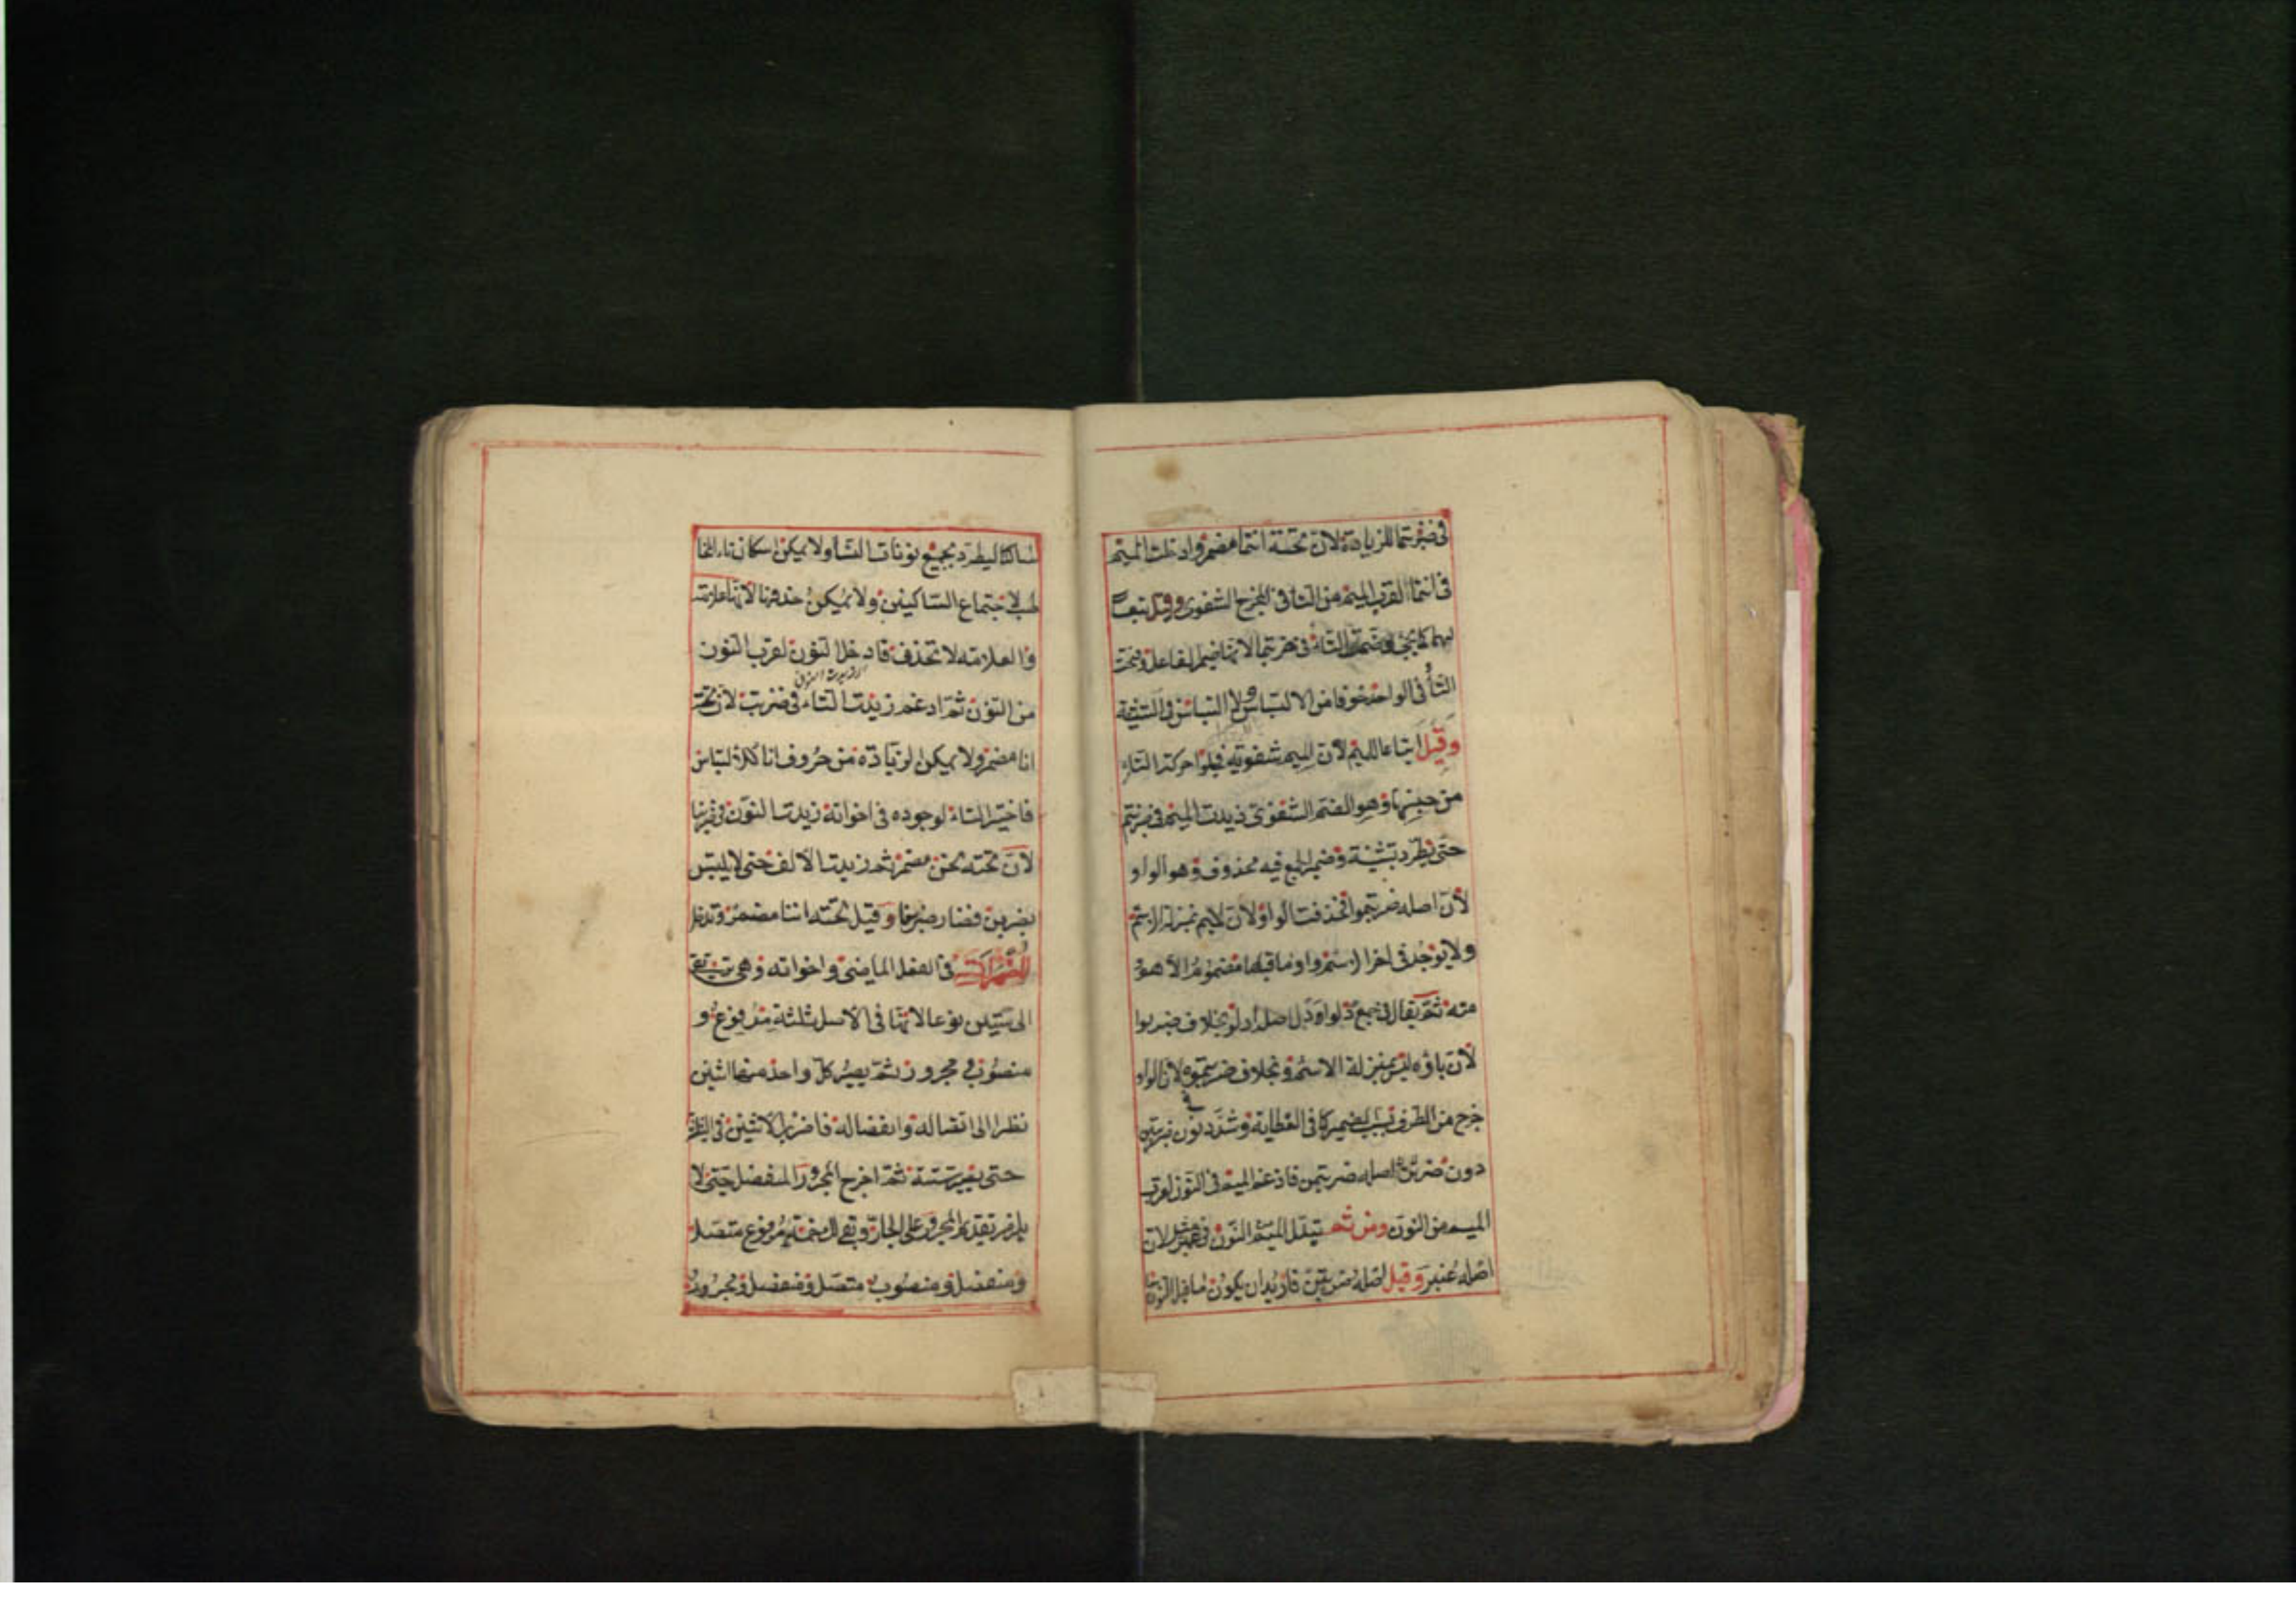 فى ضربتما للزيادة لان تحته انتما مضمر وادخلت الميم
فى انتما لقرب الميم من التا فى المخرج الشفوى وقيل تبعا
لهما كما يجئ وضمت التاء فى ضربتما لانها ضمير الفاعل وفتحت
التأ فى الواحد خوفا من الالتباس ولا التباس فى التثنية
وقيل اتباعا للميم لان الميم شفوية فجعلوا حركة التاء
من جنسها وهو الضم الشفوى زيدت الميم فى ضربتم
حتى يطرد بتثنية وضمير الجمع فيه محذوف وهو الواو
لان اصله ضربتموا فحذفت الواو لان الميم بمنزلة الاسم
ولا يوجد فى اخر الاسم واو ما قبلها مضموم الا هو
منه ثم يقال فى جمع دلو ادل اصله ادلو بخلاف ضربوا
لان باؤه ليس بمنزلة الاسم وبخلاف ضربتموه لان الواو
خرج من الطرف بسبب الضمير كما فى العظاية وشدد نون ضربتن
دون ضربن لان اصله ضربتمن فادغم الميم فى النون لقرب
الميم من النون ومن ثم تبدل الميم من النون فى عمبر لان
اصله عنبر وقيل اصله ضربتن فاريد ان يكون ما قبل النون
ساكنا ليطرد بجميع نونات النسأ ولا يمكن اسكان تاء المخا
طب لاجتماع الساكنين ولا يمكن حذفها لانها علامة
والعلامة لا تحذف فادخل النون لقرب النون
من النون ثم ادغم زيدت التاء فى ضربت لان تحته
انا مضمر ولا يمكن الزيادة من حروف انا للالتباس
فاختير التاء لوجوده فى اخواته زيدت النون فى ضربنا
لان تحته نحن مضمر ثم زيدت الالف حتى لا يلتبس
بضربن فصار ضربنا وقيل تحته اننا مضمر وتدخل
المضمرات فى الفعل الماضى واخواته وهى ترتقى
الى ستين نوعا لانها فى الاصل ثلثة مرفوع و
منصوب ومجرور ثم يصير كل واحد منها اثنين
نظرا الى اتصاله وانفصاله فاضرب الاثنين فى الثلاثة
حتى يصير ستة ثم اخرج المجرور المنفصل حتى لا
يلزم تقديم المجرور على الجار وبقى لك خمسة مرفوع متصل
ومنفصل ومنصوب متصل ومنفصل ومجرور